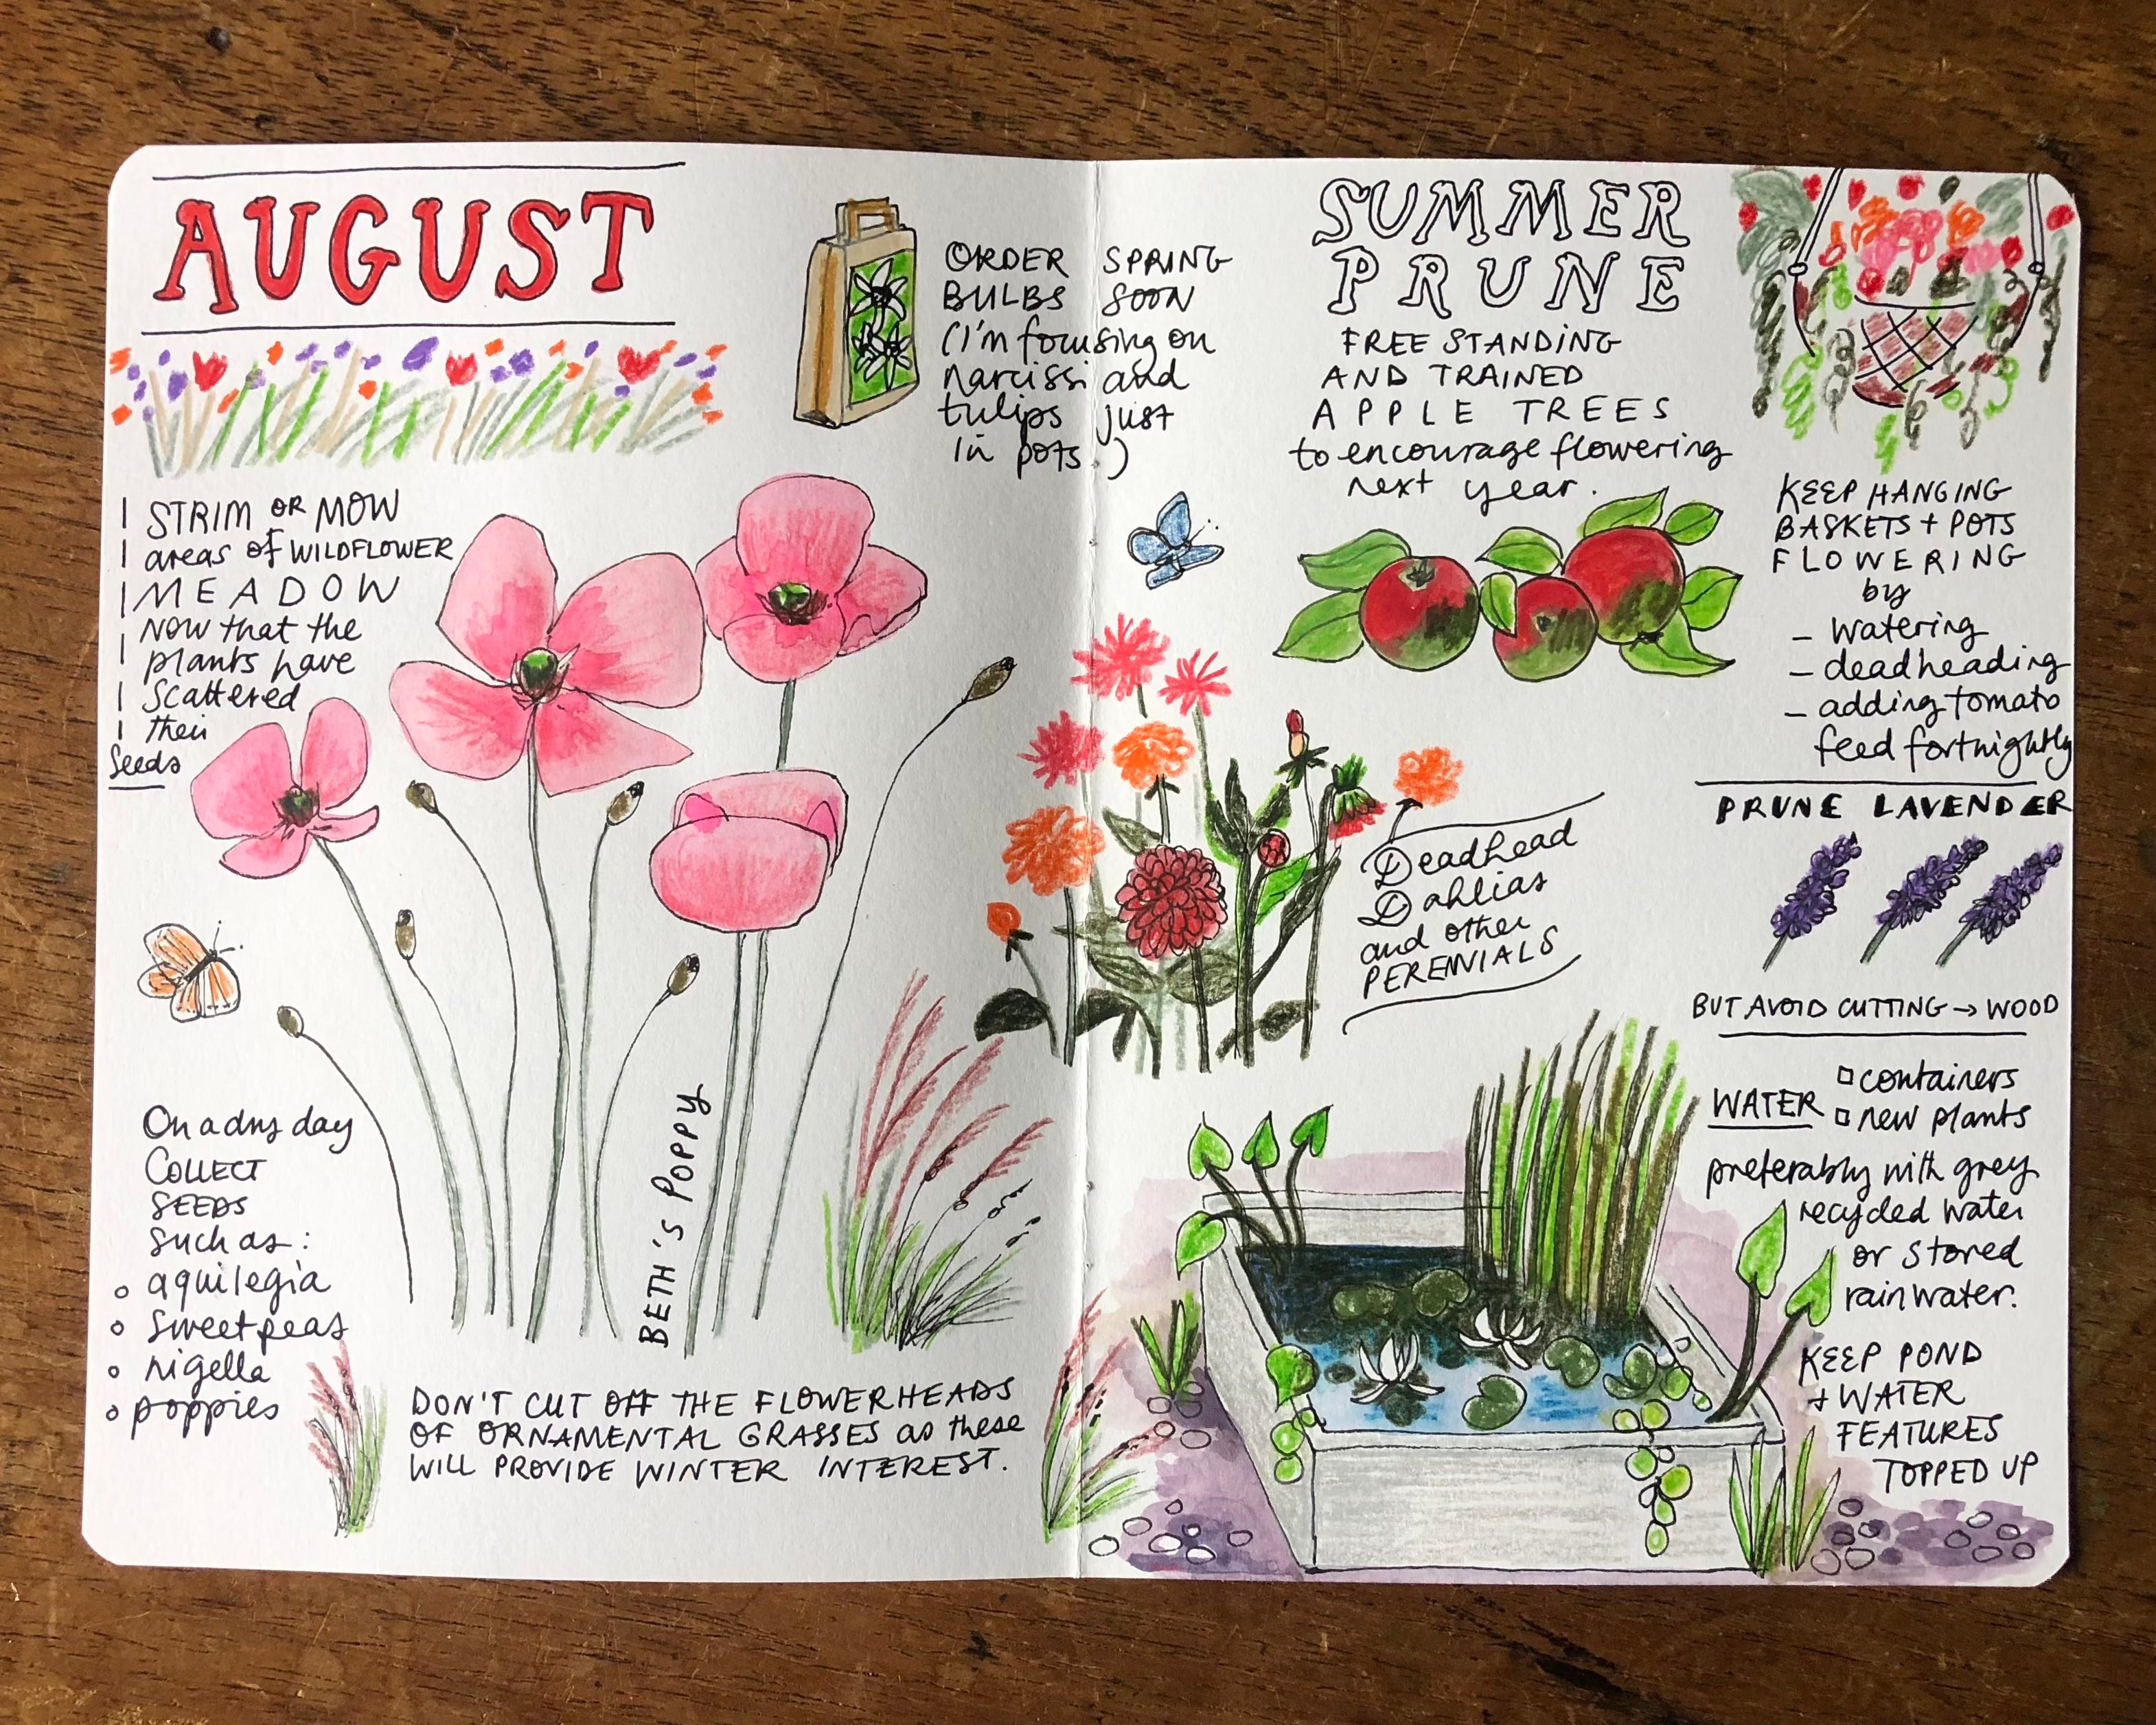 AUGUST
STRIM OR MOW
areas of WILDFLOWER
MEADOW
NOW that the
plants have
Scattered
their
Seeds
On a dry day
COLLECT
SEEDS
such as:
aquilegia
sweetpeas
nigella
poppies
BETH'S POPPY
DON'T CUT OFF THE FLOWERHEADS
OF ORNAMENTAL GRASSES as these
WILL PROVIDE WINTER INTEREST.
ORDER SPRING
BULBS SOON
(I'm focusing on
narcissi and
tulips just
in pots)
SUMMER
PRUNE
FREE STANDING
AND TRAINED
APPLE TREES
to encourage flowering
next year.
Deadhead
Dahlias
and other
PERENNIALS
KEEP HANGING
BASKETS + POTS
FLOWERING
by
- watering
- deadheading
- adding tomato
feed fortnightly
PRUNE LAVENDER
BUT AVOID CUTTING → WOOD
WATER □ containers
□ new plants
preferably with grey
recycled water
or stored
rainwater.
KEEP POND
+ WATER
FEATURES
TOPPED UP